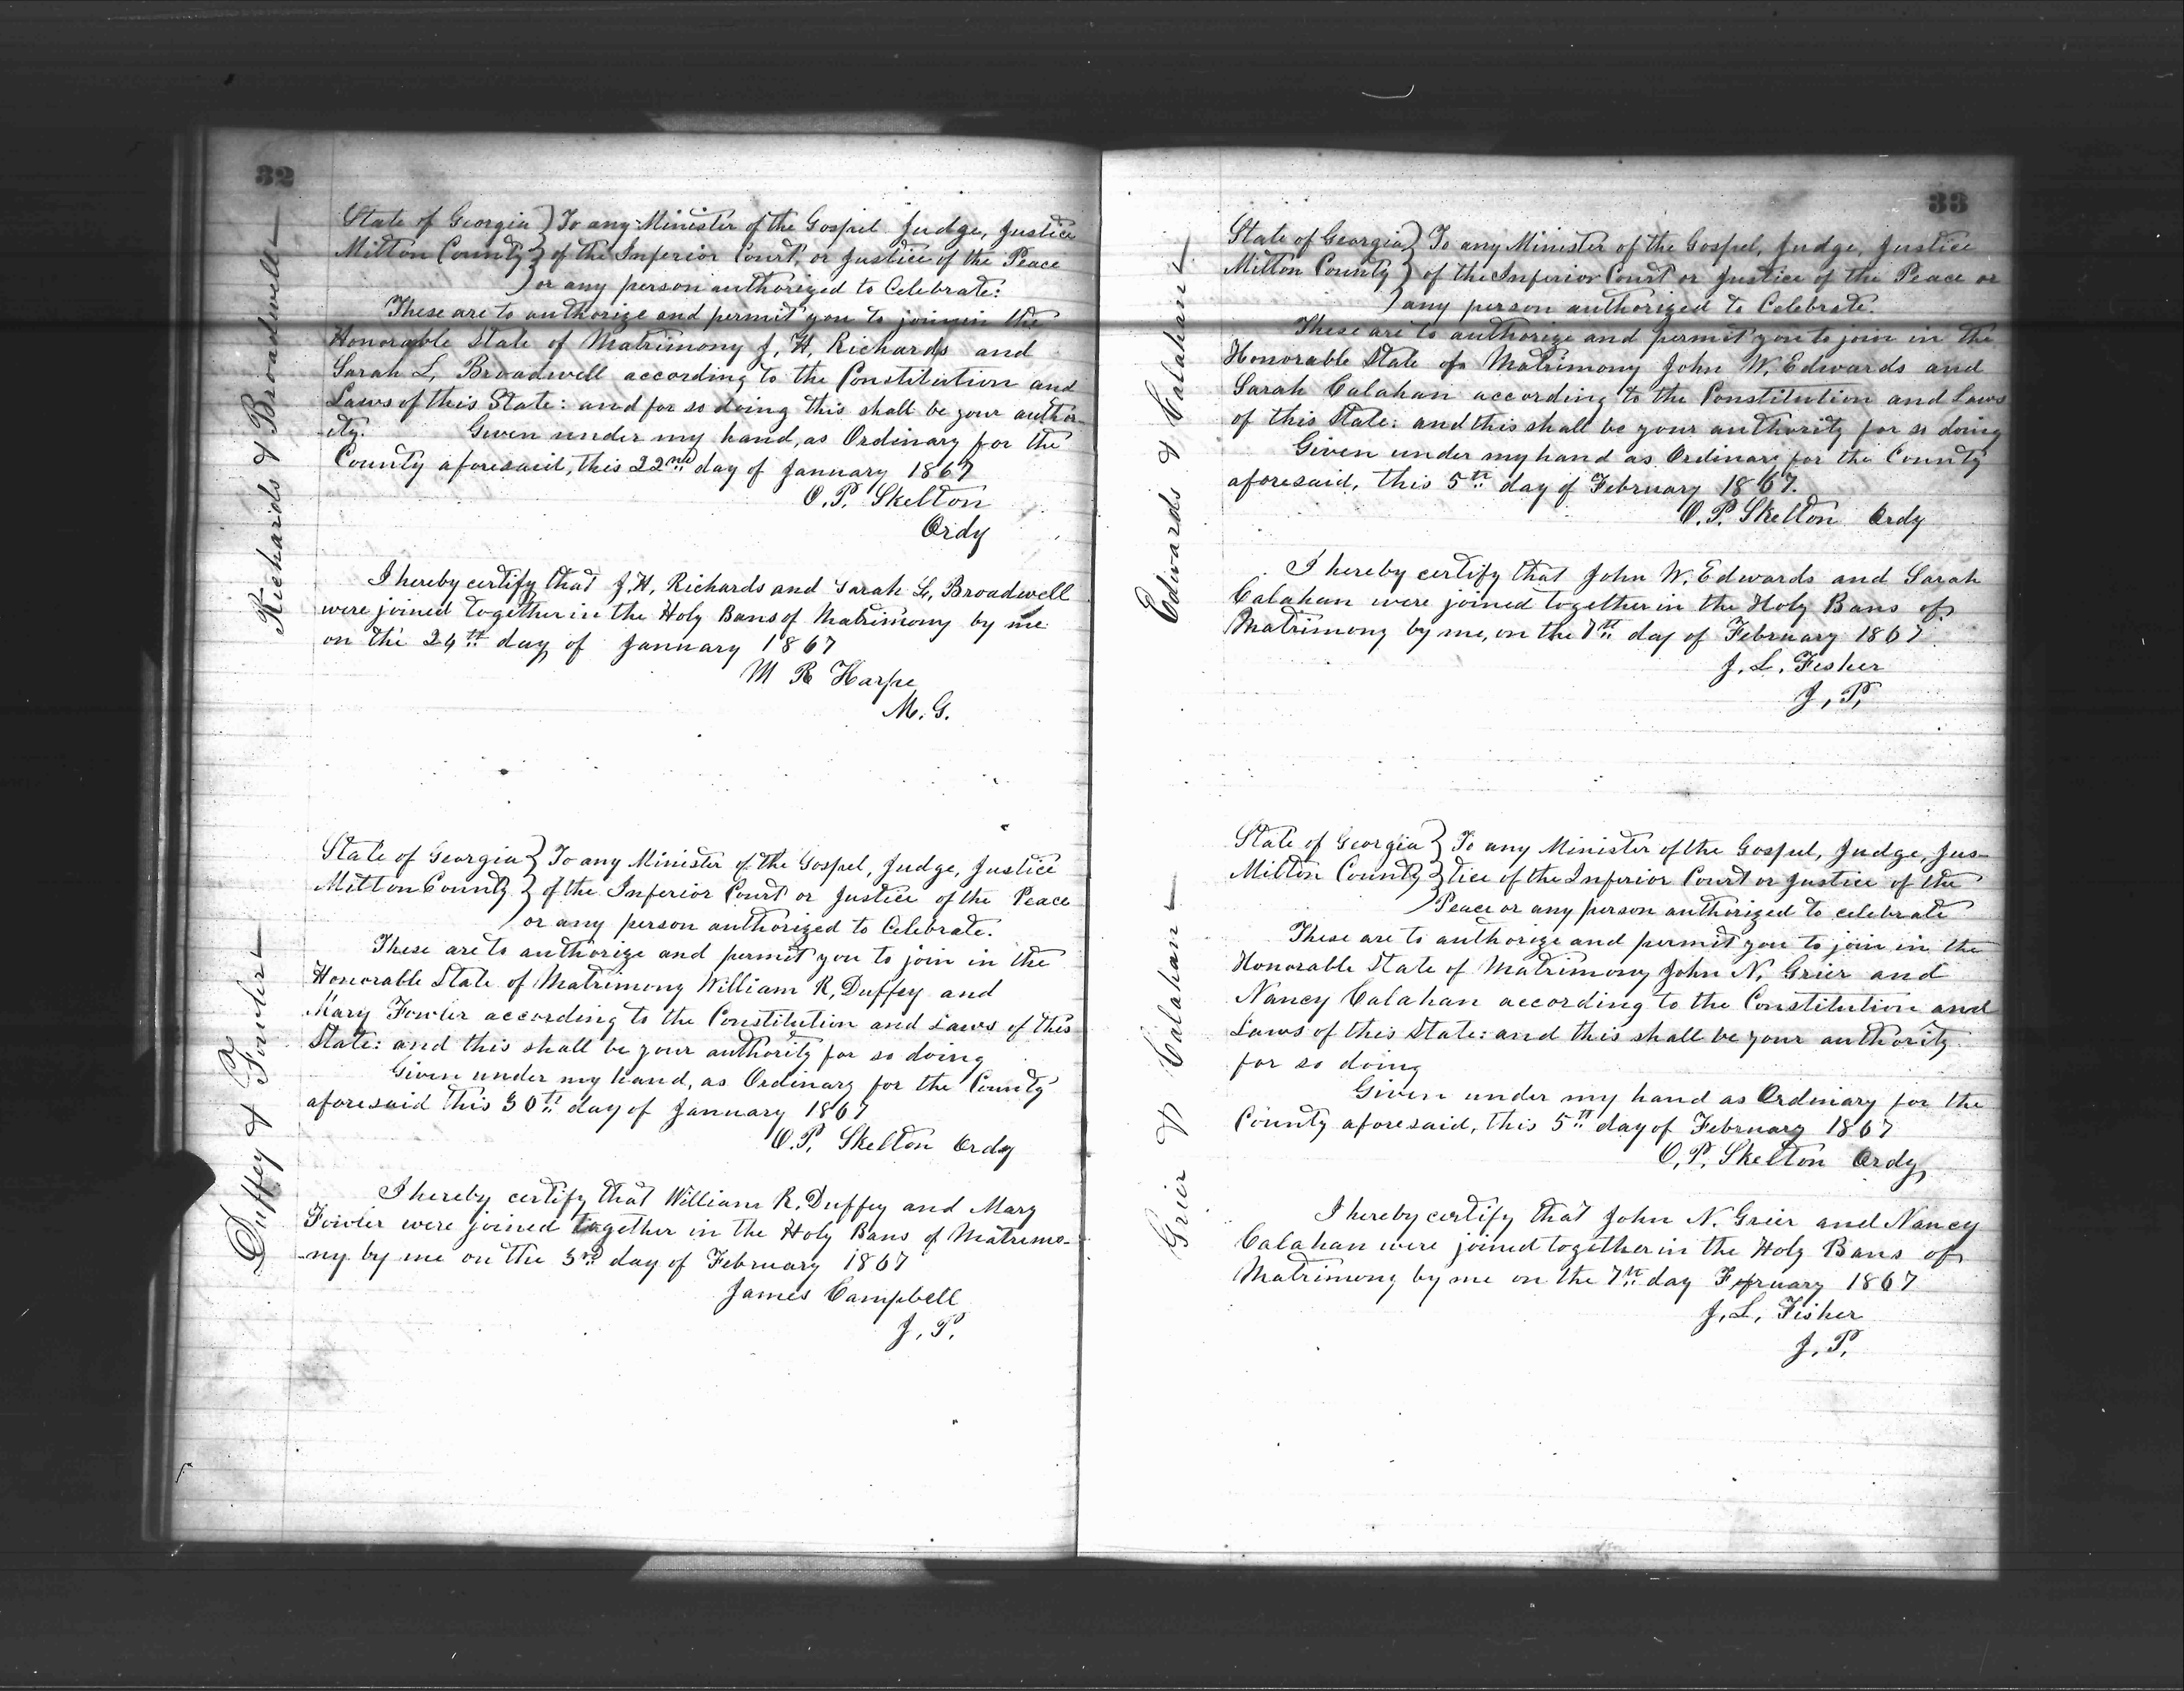 32
Richards & Broadwell
State of Georgia } To any Minister of the Gospel Judge, Justice
Milton County } of the Inferior Court, or Justice of the Peace
} or any person authorized to Celebrate:
These are to authorize and permit you to join in the
Honorable State of Matrimony J, H, Richards and
Sarah L, Broadwell according to the Constitution and
Laws of this State: and for so doing this shall be your author-
ity. Given under my hand, as Ordinary for the
County aforesaid, this 22nd day of January 1867
O. P. Skelton
Ordy
I hereby certify that J. H, Richards and Sarah L, Broadwell
were joined together in the Holy Bans of Matrimony by me
on the 24th day of January 1867
M R Harpe
M. G.
Duffey & Fowler
State of Georgia } To any Minister of the Gospel, Judge, Justice
Milton County } of the Inferior Court or Justice of the Peace
} or any person authorized to Celebrate.
These are to authorize and permit you to join in the
Honorable State of Matrimony William R, Duffey and
Mary Fowler according to the Constitution and Laws of this
State: and this shall be your authority for so doing
Given under my hand, as Ordinary for the County
aforesaid this 30th day of January 1867
O. P. Skelton Ordy
I hereby certify that William R. Duffey and Mary
Fowler were joined together in the Holy Bans of Matrimo-
-ny by me on the 3rd day of February 1867
James Campbell
J. P.
33
Edwards & Calahan
State of Georgia } To any Minister of the Gospel, Judge, Justice
Milton County } of the Inferior Court or Justice of the Peace or
} any person authorized to Celebrate.
These are to authorize and permit you to join in the
Honorable State of Matrimony John W. Edwards and
Sarah Calahan according to the Constitution and Laws
of this State: and this shall be your authority for so doing
Given under my hand as Ordinary for the County
aforesaid, this 5th day of February 1867.
O. P. Skelton Ordy
I hereby certify that John W. Edwards and Sarah
Calahan were joined together in the Holy Bans of
Matrimony by me, on the 7th day of February 1867
J. L. Fisher
J, P,
Grier & Calahan
State of Georgia } To any Minister of the Gospel, Judge, Jus-
Milton County } tice of the Inferior Court or Justice of the
} Peace or any person authorized to celebrate
These are to authorize and permit you to join in the
Honorable State of Matrimony John N. Grier and
Nancy Calahan according to the Constitution and
Laws of this State: and this shall be your authority
for so doing
Given under my hand as Ordinary for the
County aforesaid, this 5th day of February 1867
O, P, Skelton Ordy,
I hereby certify that John N. Grier and Nancy
Calahan were joined together in the Holy Bans of
Matrimony by me on the 7th day Fepruary 1867
J. L, Fisher
J. P.